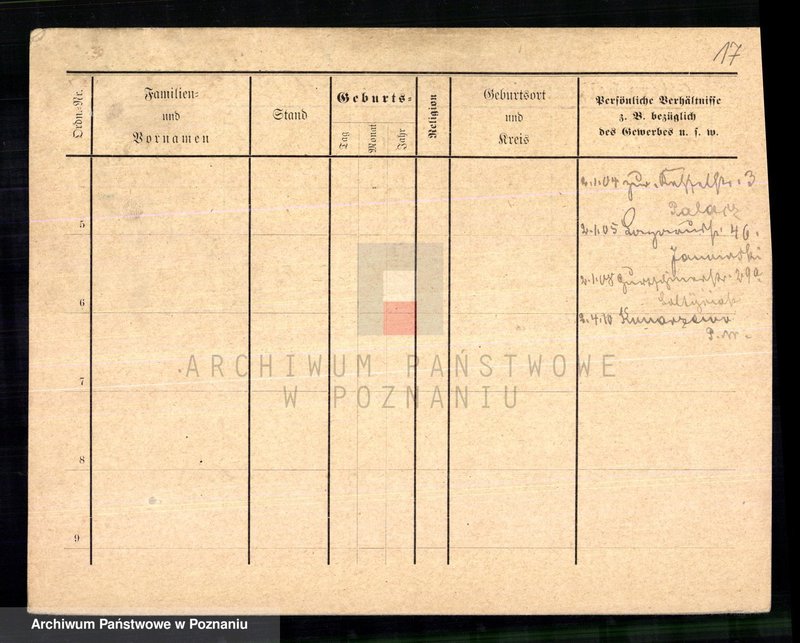 17
Ordn.-Nr.
Familien-
und
Vornamen
Stand
Geburts-
Tag
Monat
Jahr
Religion
Geburtsort
und
Kreis
Persönliche Verhältnisse
z. B. bezüglich
des Gewerbes u. s. w.
2.1.04 3
Palacz
5
2.1.05 46.
2.1.08 29a
6
2.4.10 Kunarzewo
P. W.
ARCHIWUM PAŃSTWOWE
W POZNANIU
7
8
9
Archiwum Państwowe w Poznaniu